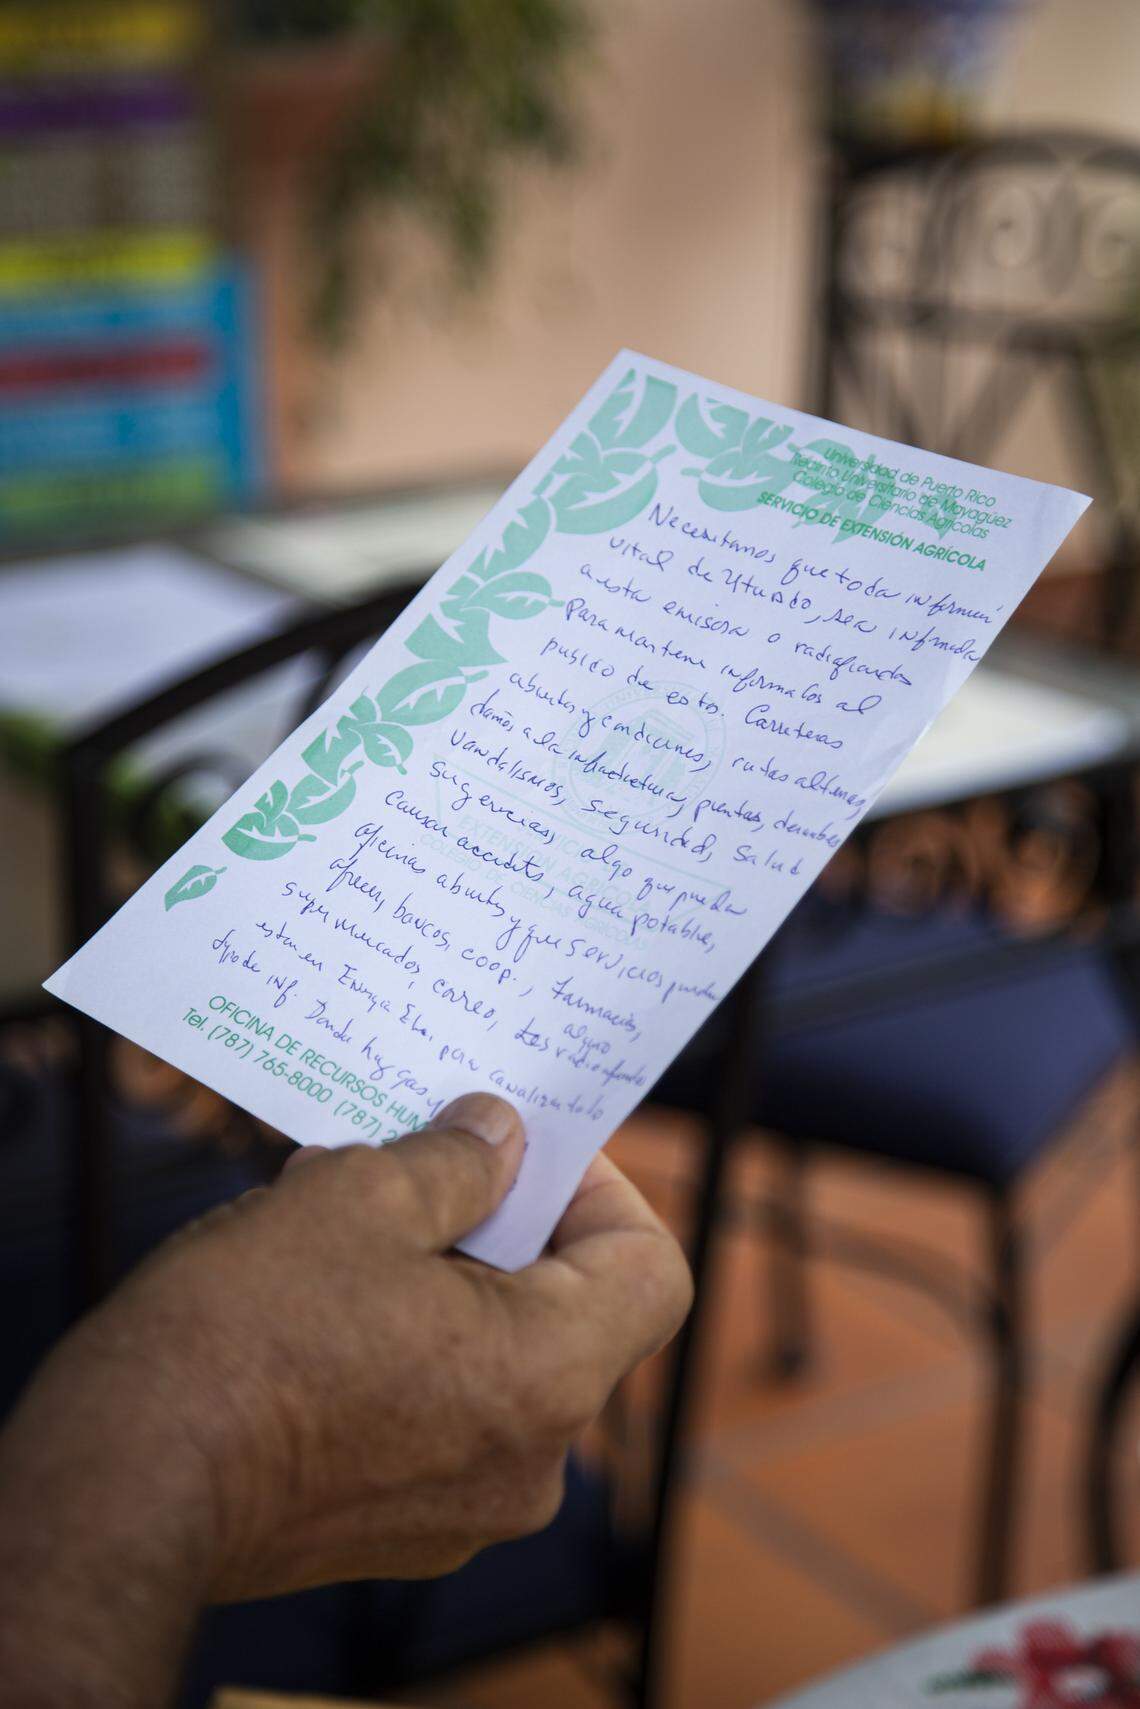 Universidad de Puerto Rico
Recinto Universitario de Mayagüez
Colegio de Ciencias Agrícolas
SERVICIO DE EXTENSIÓN AGRÍCOLA
Necesitamos que toda
vital de Utuado, sea informada
a esta emisora o radioaficionados
Para mantener informados al
publico de estos. Carreteras
abiertas y condiciones, rutas alternas,
daños a la infraestructura, puentes, derrumbes
Vandalismos, seguridad, salud
sugerencias, algo que pueda
causar accidentes, agua potable,
oficinas abiertas y que servicios pueden
ofrecer, bancos, coop., Farmacias,
supermercados, correo, algún
estan en Energía Elec. para canalizar
tipo de inf. Donde hay gas y
EXTENSIÓN AGRÍCOLA
COLEGIO DE CIENCIAS AGRÍCOLAS
OFICINA DE RECURSOS HUM
Tel. (787) 765-8000 (787) 2